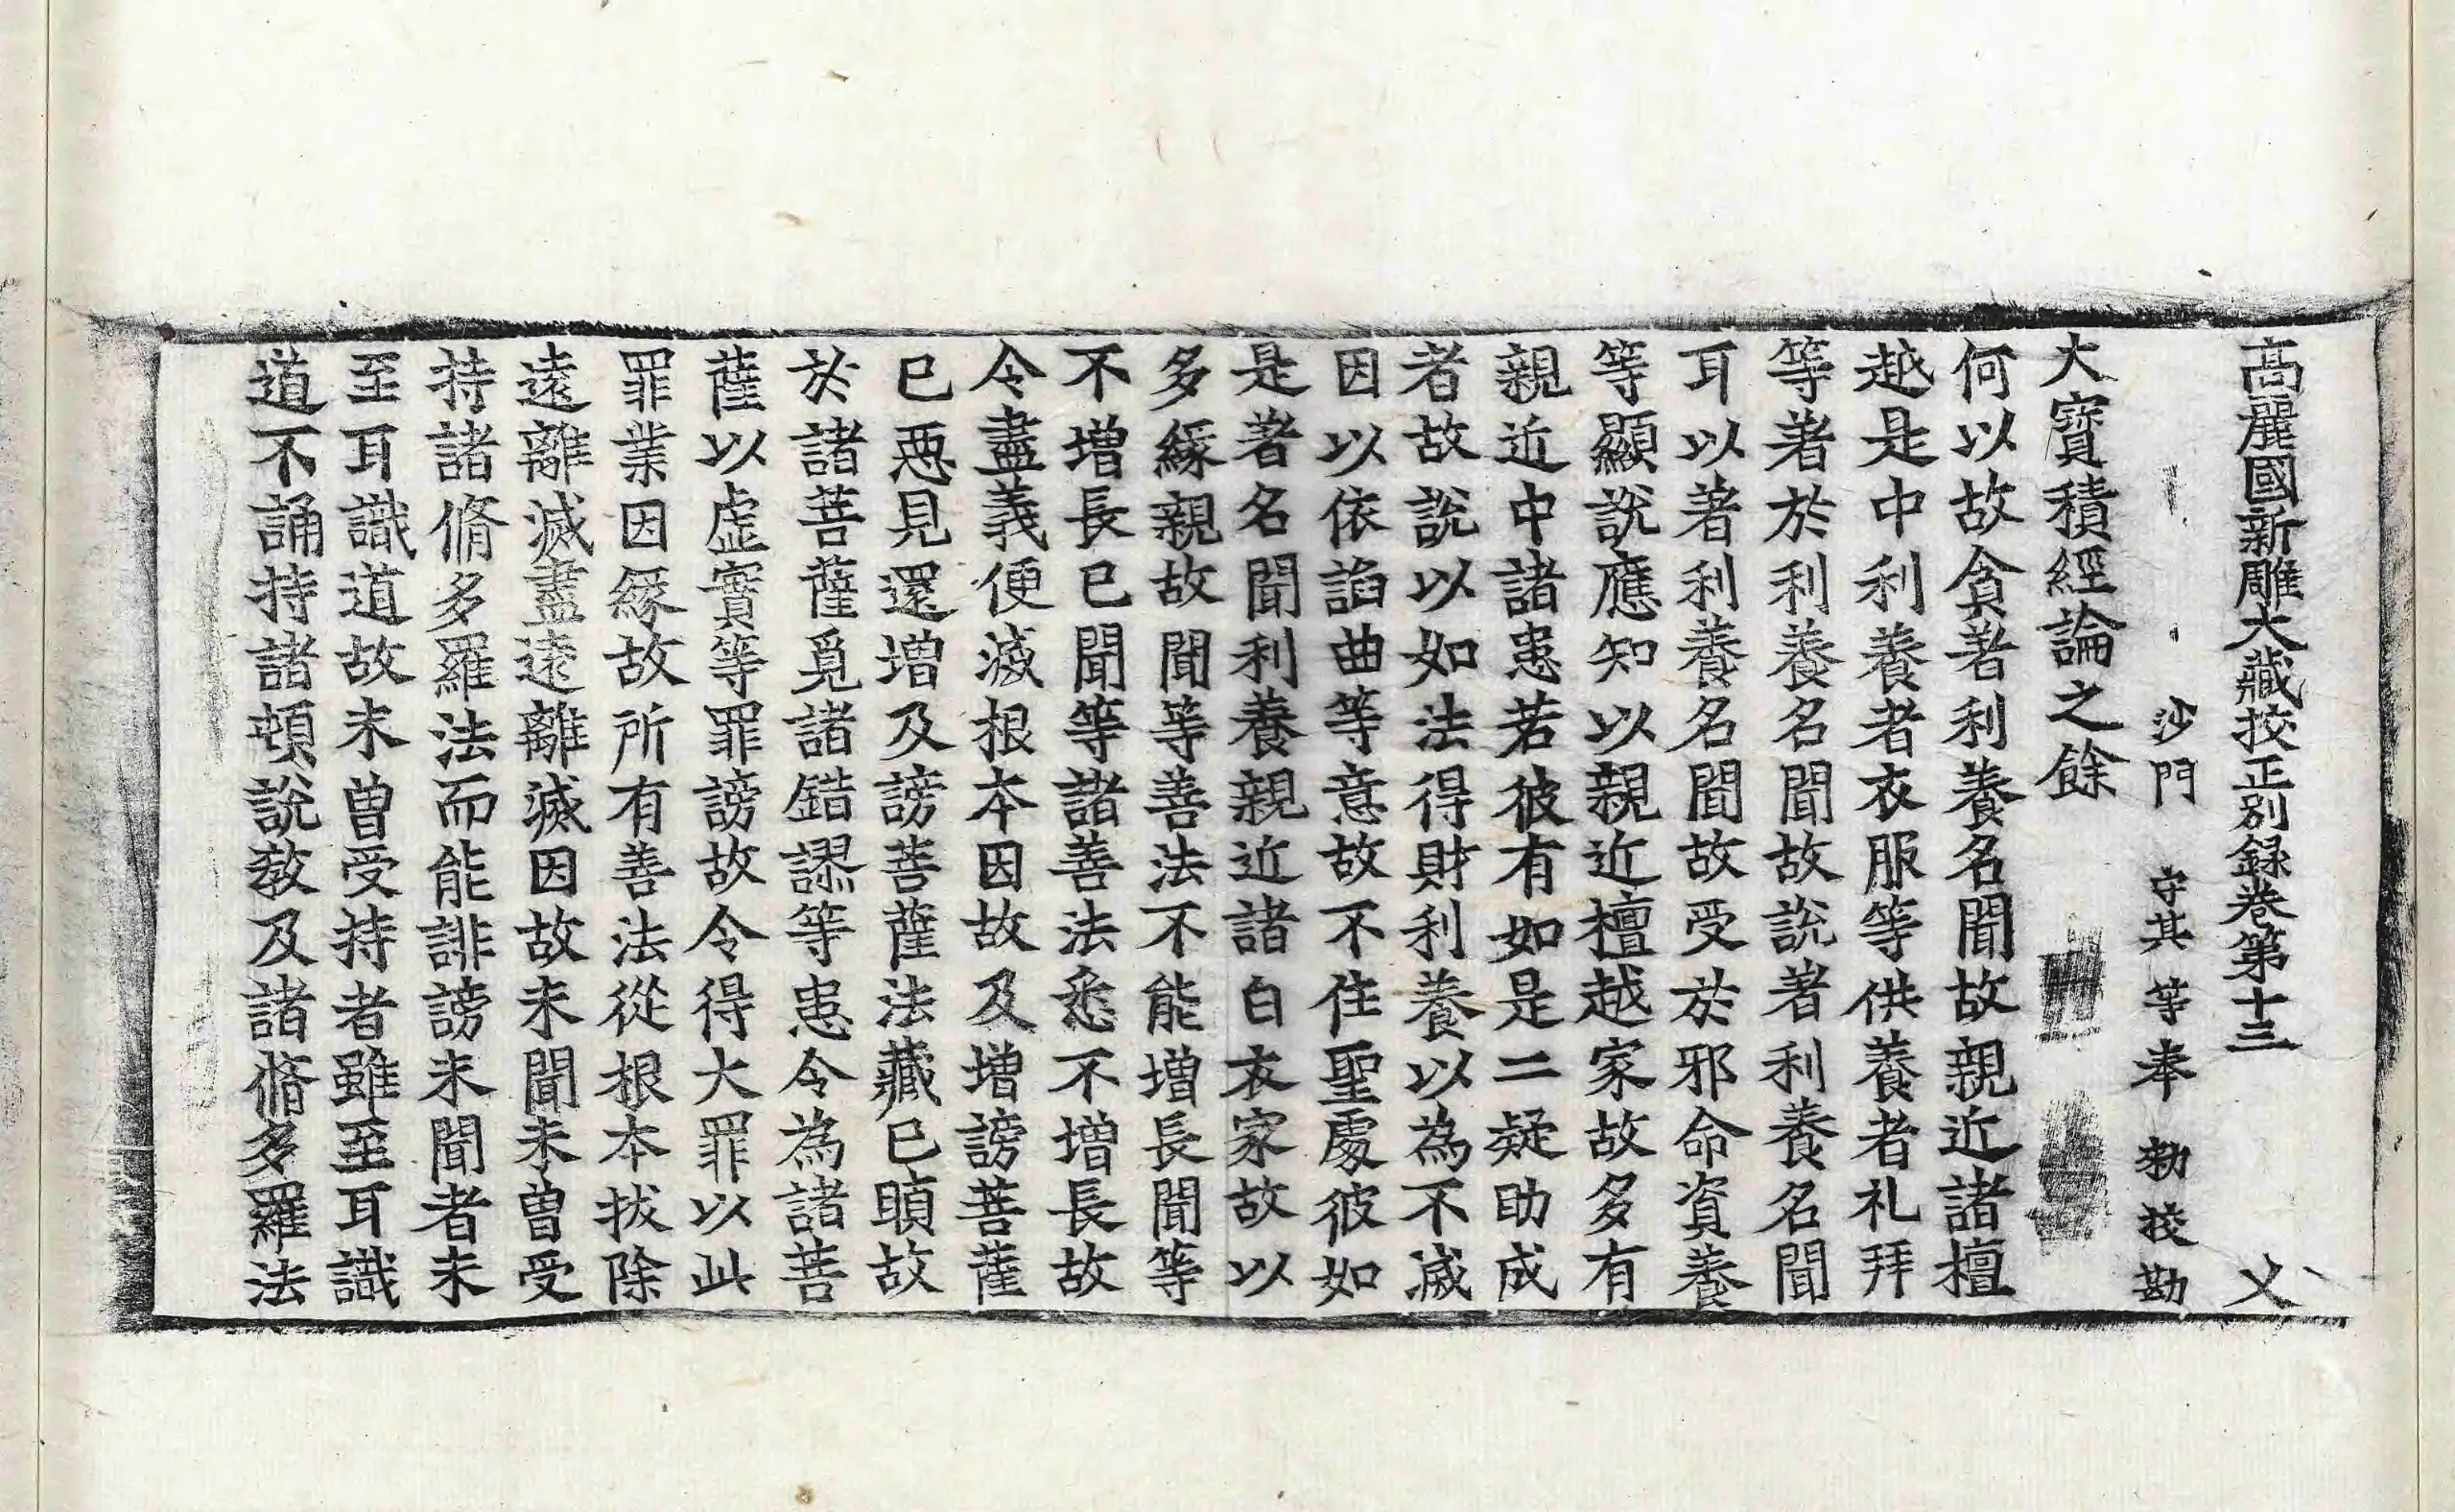 高麗國新雕大藏挍正別錄卷第十三 乂
沙門 守其 等奉 勑挍勘
大寳積經論之餘
何以故貪著利養名聞故親近諸檀
越是中利養者衣服等供養者礼拜
等著於利養名聞故說著利養名聞
耳以著利養名聞故受於邪命資養
等顯說應知以親近檀越家故多有
親近中諸患若彼有如是二疑助成
者故說以如法得財利養以為不滅
因以依諂曲等意故不住聖處彼如
是著名聞利養親近諸白衣家故以
多緣親故聞等善法不能增長聞等
不增長已聞等諸善法悉不增長故
令盡義便滅根本因故及增謗菩薩
已惡見還增及謗菩薩法藏已瞋故
於諸菩薩覓諸錯謬等患令為諸菩
薩以虛實等罪謗故令得大罪以此
罪業因緣故所有善法從根本拔除
遠離滅盡遠離滅因故未聞未曾受
持諸脩多羅法而能誹謗未聞者未
至耳識道故未曾受持者雖至耳識
道不誦持諸頓說教及諸脩多羅法